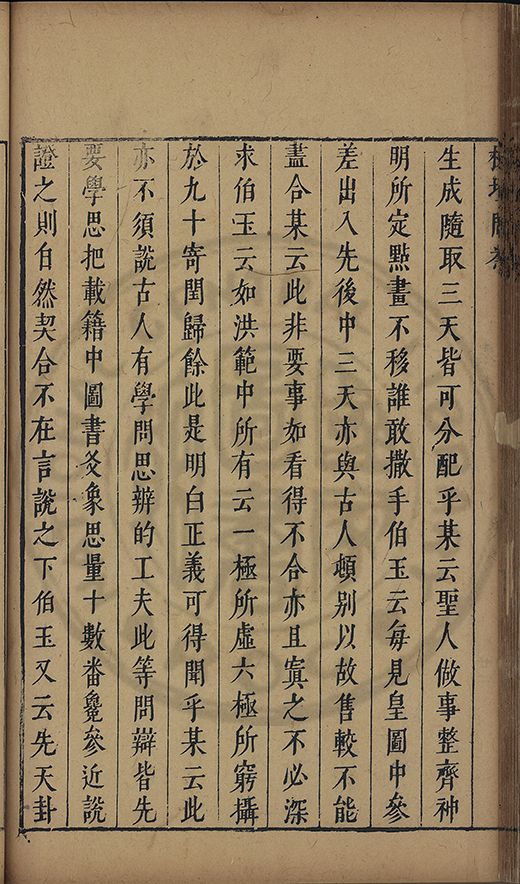 榕壇問業
生成隨取三天皆可分配乎某云聖人做事整齊神
明所定點畫不移誰敢撒手伯玉云每見皇圖中參
差出入先後中三天亦與古人頓別以故售較不能
盡合某云此非要事如看得不合亦且寘之不必深
求伯玉云如洪範中所有云一極所虛六極所窮攝
於九十寄閏歸餘此是明白正義可得聞乎某云此
亦不須說古人有學問思辨的工夫此等問辯皆先
要學思把載籍中圖書爻象思量十數番纔參近說
證之則自然契合不在言說之下伯玉又云先天卦